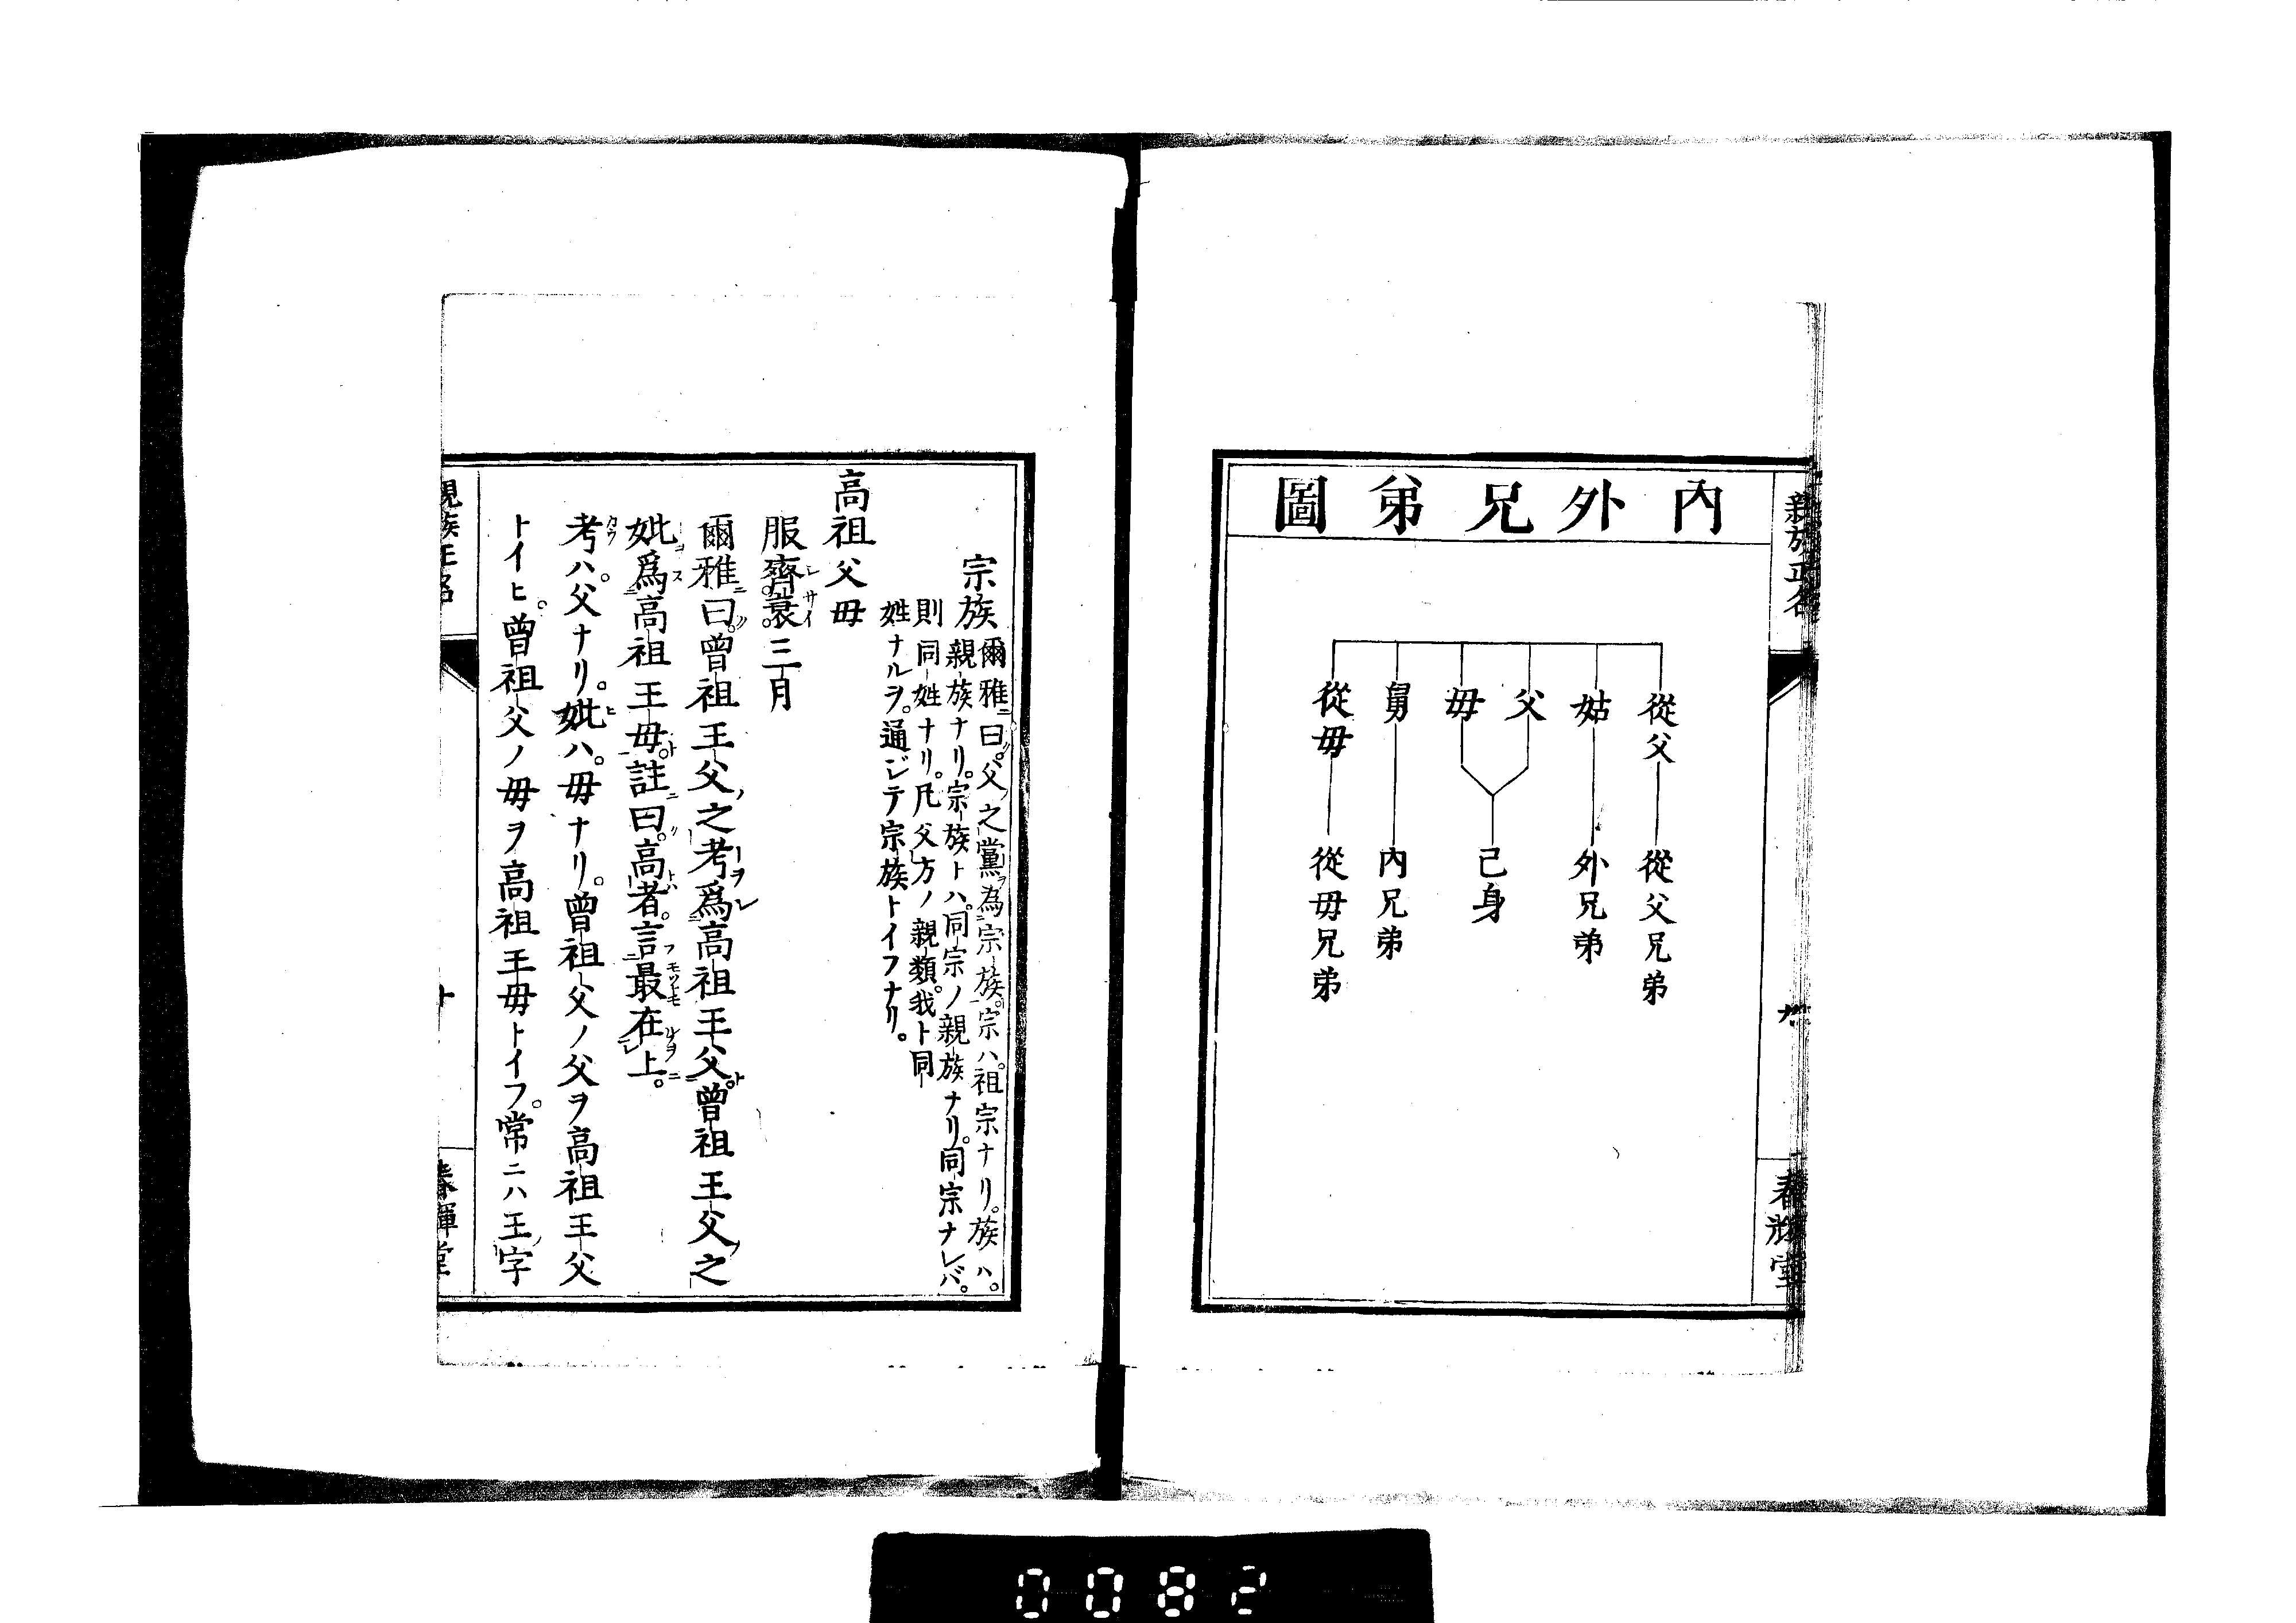 內外兄弟圖
從父
從父兄弟
姑
外兄弟
父
母
己身
舅
內兄弟
從母
從母兄弟
親族正名
春暉堂
宗族
爾雅ニ曰。父之黨ヲ為宗族。宗ハ。祖宗ナリ。族ハ。
親族ナリ。宗族トハ。同宗ノ親族ナリ。同宗ナレバ。
則同姓ナリ。凡父方ノ親類。我ト同
姓ナルヲ。通ジテ宗族トイフナリ。
高祖父母
服齊衰三月
爾雅ニ曰。曾祖王父之考爲高祖王父。曾祖王父之
妣爲高祖王母。註曰。高者。言最在上。
考ハ。父ナリ。妣ハ。母ナリ。曾祖父ノ父ヲ高祖王父
トイヒ。曾祖父ノ母ヲ高祖王母トイフ。常ニハ王字
親族正名
春暉堂
0082